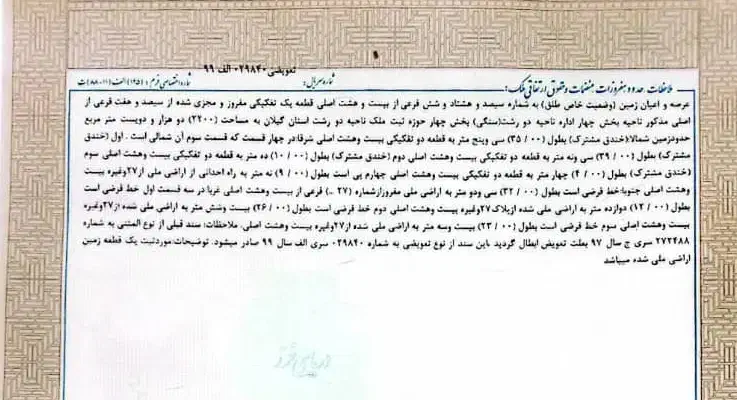 تعویضی ۰۲۹۸۴۰ الف ۹۹
ملاحظات حدود مفروزات منضمات و حقوق ارتفاقی ملک: شماره سریال: شماره اختصاصی فرم: (۱۲۵) الف (۱۱-۸۸) ت
عرصه و اعیان زمین (وضعیت خاص طلق) به شماره سیصد و هشتاد و شش فرعی از بیست و هشت اصلی قطعه یک تفکیکی مفروز و مجزی شده از سیصد و هفت فرعی از
اصلی مذکور ناحیه بخش چهار اداره ناحیه دو رشت(سنگی) بخش چهار حوزه ثبت ملک ناحیه دو رشت استان گیلان به مساحت (۲۲۰۰) دو هزار و دویست متر مربع
حدودزمین شمالا:(خندق مشترک) بطول (۳۵/۰۰) سی وپنج متر به قطعه دو تفکیکی بیست وهشت اصلی شرقا:در چهار قسمت که قسمت سوم آن شمالی است . اول (خندق
مشترک) بطول (۳۹/۰۰) سی ونه متر به قطعه دو تفکیکی بیست وهشت اصلی دوم (خندق مشترک) بطول (۱۰/۰۰) ده متر به قطعه دو تفکیکی بیست وهشت اصلی سوم
(خندق مشترک) بطول (۴/۰۰) چهار متر به قطعه دو تفکیکی بیست وهشت اصلی چهارم پی است بطول (۹/۰۰) نه متر به راه احداثی از اراضی ملی از۲۷وغیره بیست
وهشت اصلی جنوبا:خط فرضی است بطول (۳۲/۰۰) سی ودو متر به اراضی ملی مفروزازشماره (۲۷ ..) فرعی از بیست وهشت اصلی غربا:در سه قسمت اول خط فرضی است
بطول (۱۲/۰۰) دوازده متر به اراضی ملی شده ازپلاک۲۷وغیره بیست وهشت اصلی دوم خط فرضی است بطول (۲۶/۰۰) بیست وشش متر به اراضی ملی شده از۲۷وغیره
بیست وهشت اصلی سوم خط فرضی است بطول (۲۳/۰۰) بیست وسه متر به اراضی ملی شده از۲۷وغیره بیست وهشت اصلی. ملاحظات: سند قبلی از نوع المثنی به شماره
۲۷۲۴۸۸ سری ج سال ۹۷ بعلت تعویض ابطال گردید ،این سند از نوع تعویضی به شماره ۰۲۹۸۴۰ سری الف سال ۹۹ صادر میشود. توضیحات:موردثبت یک قطعه زمین
اراضی ملی شده میباشد